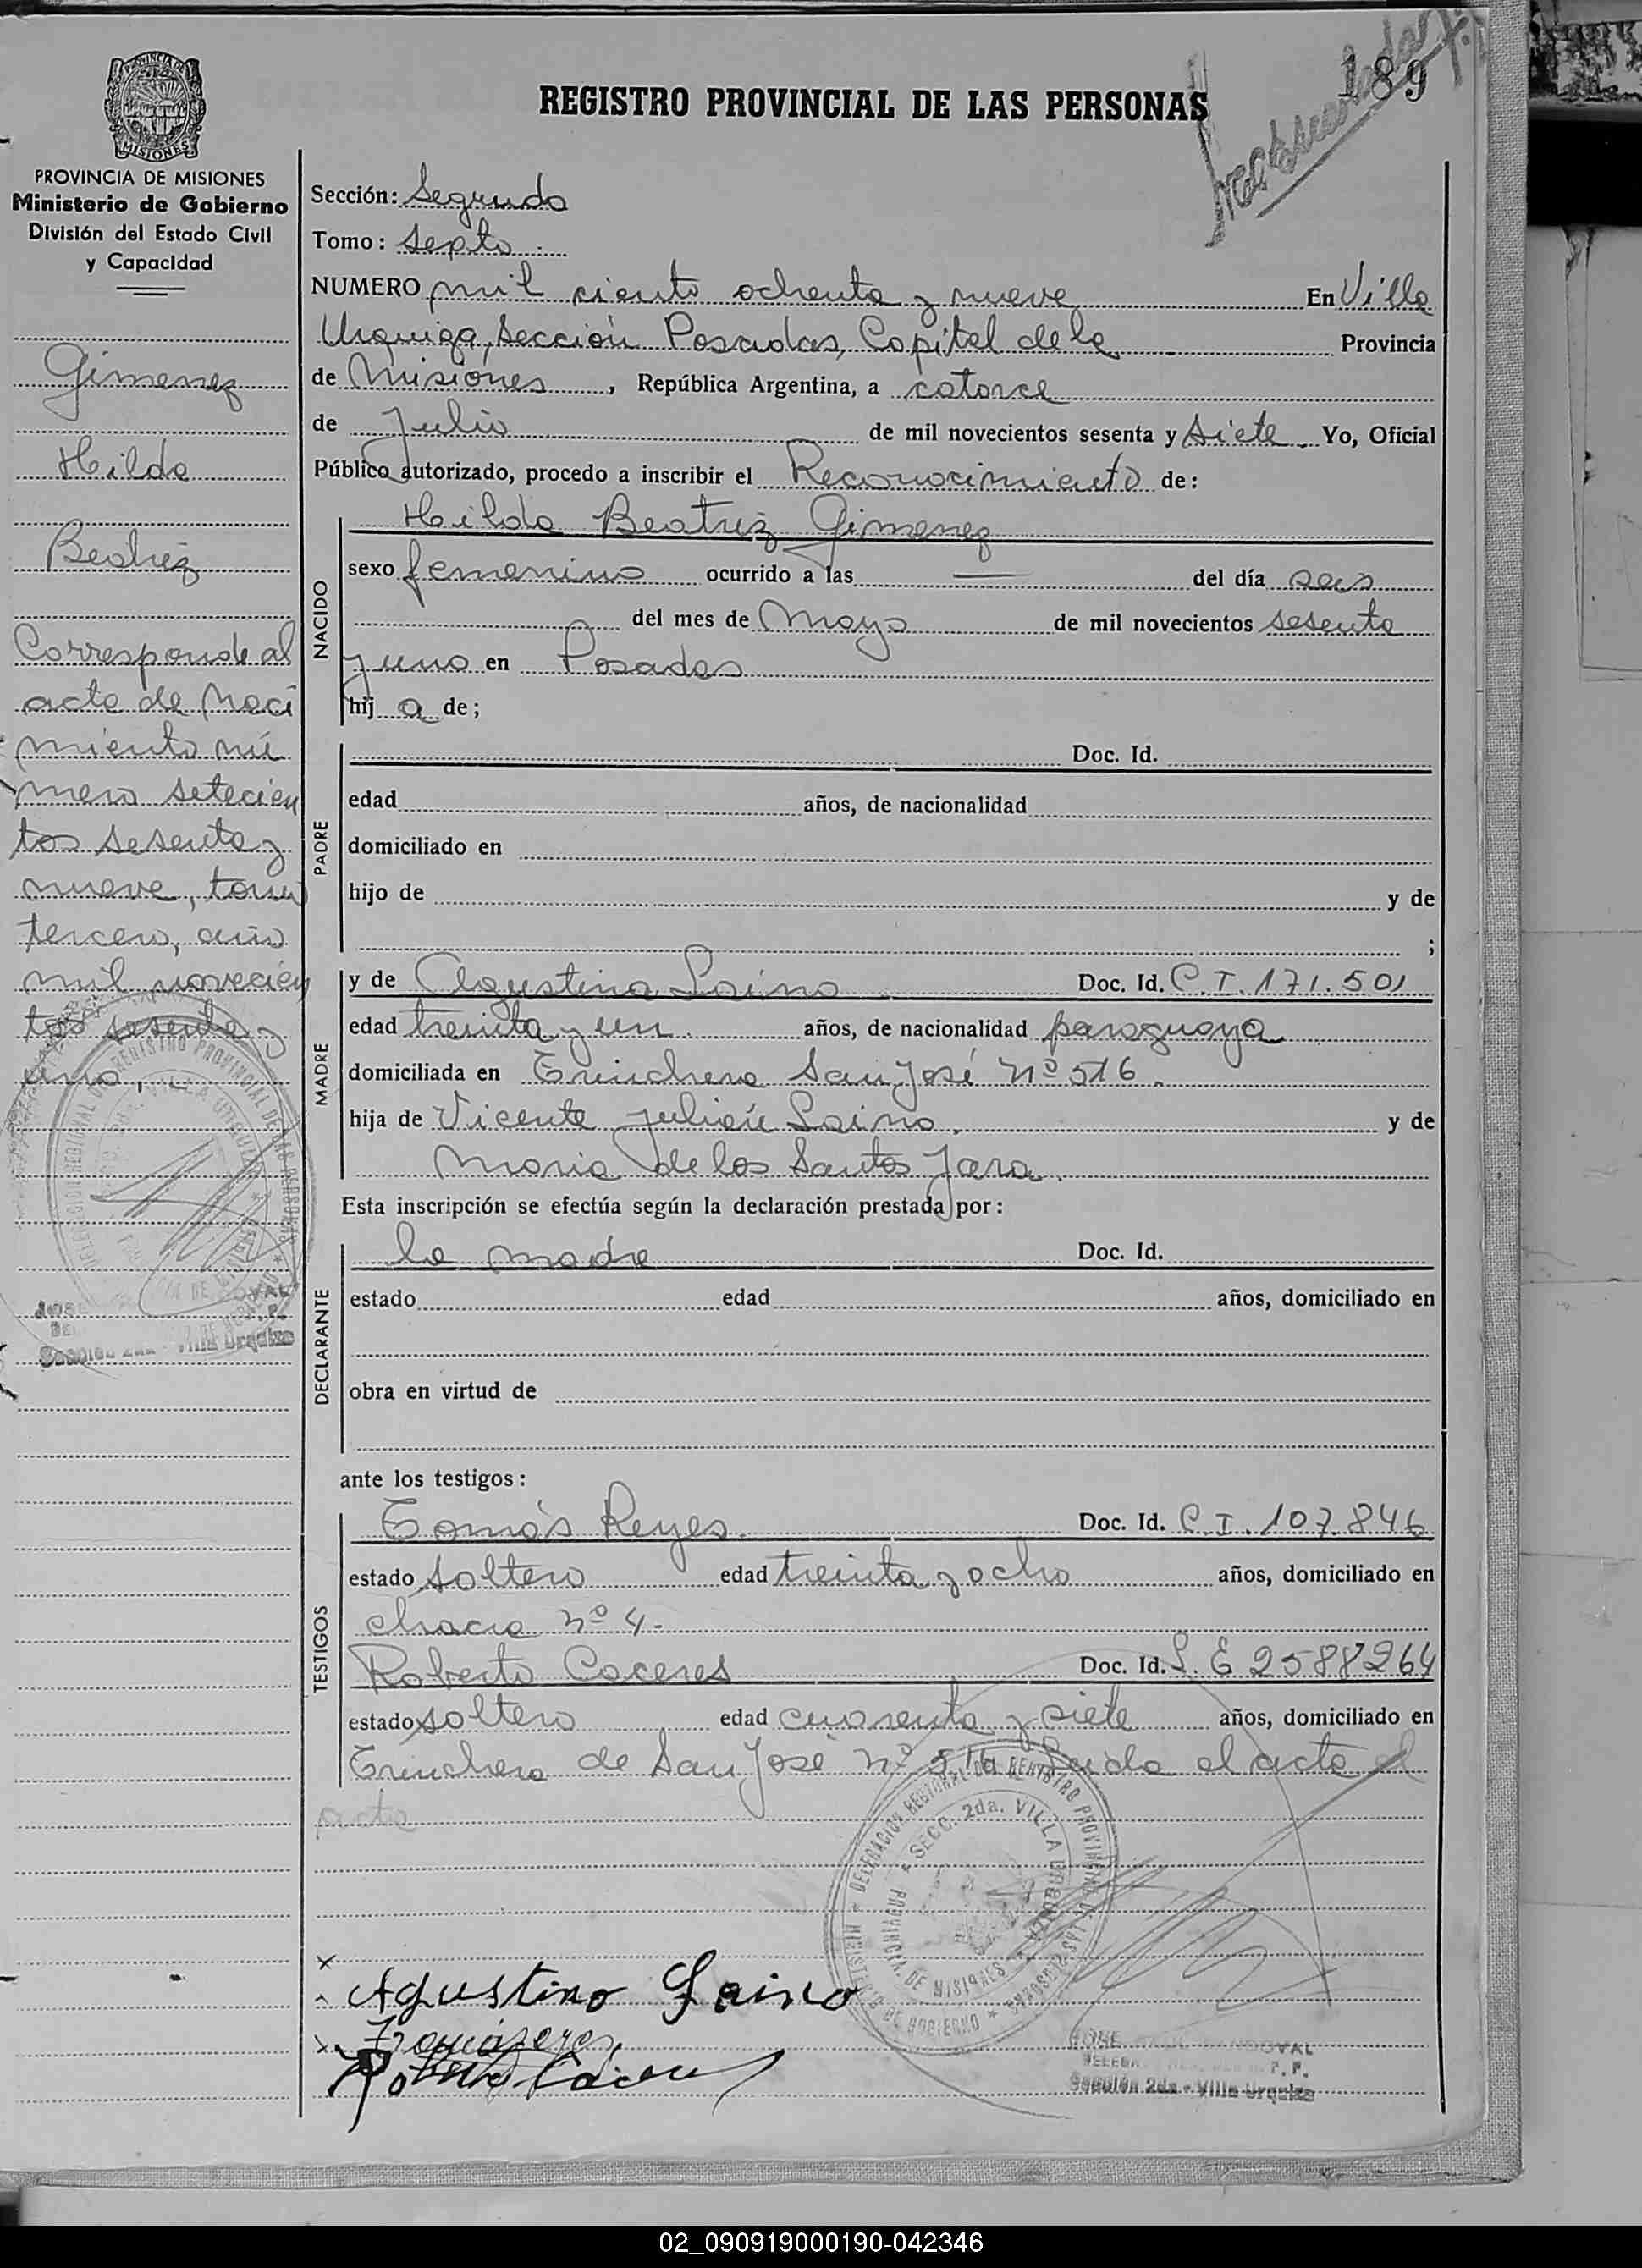 189
REGISTRO PROVINCIAL DE LAS PERSONAS
PROVINCIA DE MISIONES
Ministerio de Gobierno
División del Estado Civil
y Capacidad
Gimenez
Hilda
Beatriz
Corresponde al
acta de Naci
miento nú
mero setecien
tos sesenta y
nueve, tomo
tercero, año
mil novecien
tos sesenta y
uno,
Sección: Segunda
Tomo: Septo
NUMERO mil ciento ochenta y nueve En Villa
Urquiza, Sección Posadas, Capital de la Provincia
de Misiones, República Argentina, a catorce
de Julio de mil novecientos sesenta y Siete Yo, Oficial
Público autorizado, procedo a inscribir el Reconocimiento de:
NACIDO
Hilda Beatriz Gimenez
sexo femenino ocurrido a las — del día seis
del mes de Mayo de mil novecientos sesenta
y uno en Posadas
hij a de;
PADRE
Doc. Id.
edad años, de nacionalidad
domiciliado en
hijo de y de
;
MADRE
y de Agustina Laino Doc. Id. C.I. 171.501
edad treinta y un años, de nacionalidad paraguaya
domiciliada en Trinchera San José Nº 516.
hija de Vicente Julián Laino. y de
Maria de los Santos Jara.
Esta inscripción se efectúa según la declaración prestada por:
DECLARANTE
la madre Doc. Id.
estado edad años, domiciliado en
obra en virtud de
ante los testigos:
TESTIGOS
Tomás Reyes. Doc. Id. C.I. 107.846
estado soltero edad treinta y ocho años, domiciliado en
chacra nº 4.
Roberto Caceres Doc. Id. L. E 2588264
estado soltero edad cuarenta y siete años, domiciliado en
Trinchera de San José nº 516 Leida el acta el
acta
SECC. 2da. VILLA URQUIZA
PROVINCIA DE MISIONES
Agustina Laino
Roberto Cáceres
Sección 2da - Villa Urquiza
02_090919000190-042346